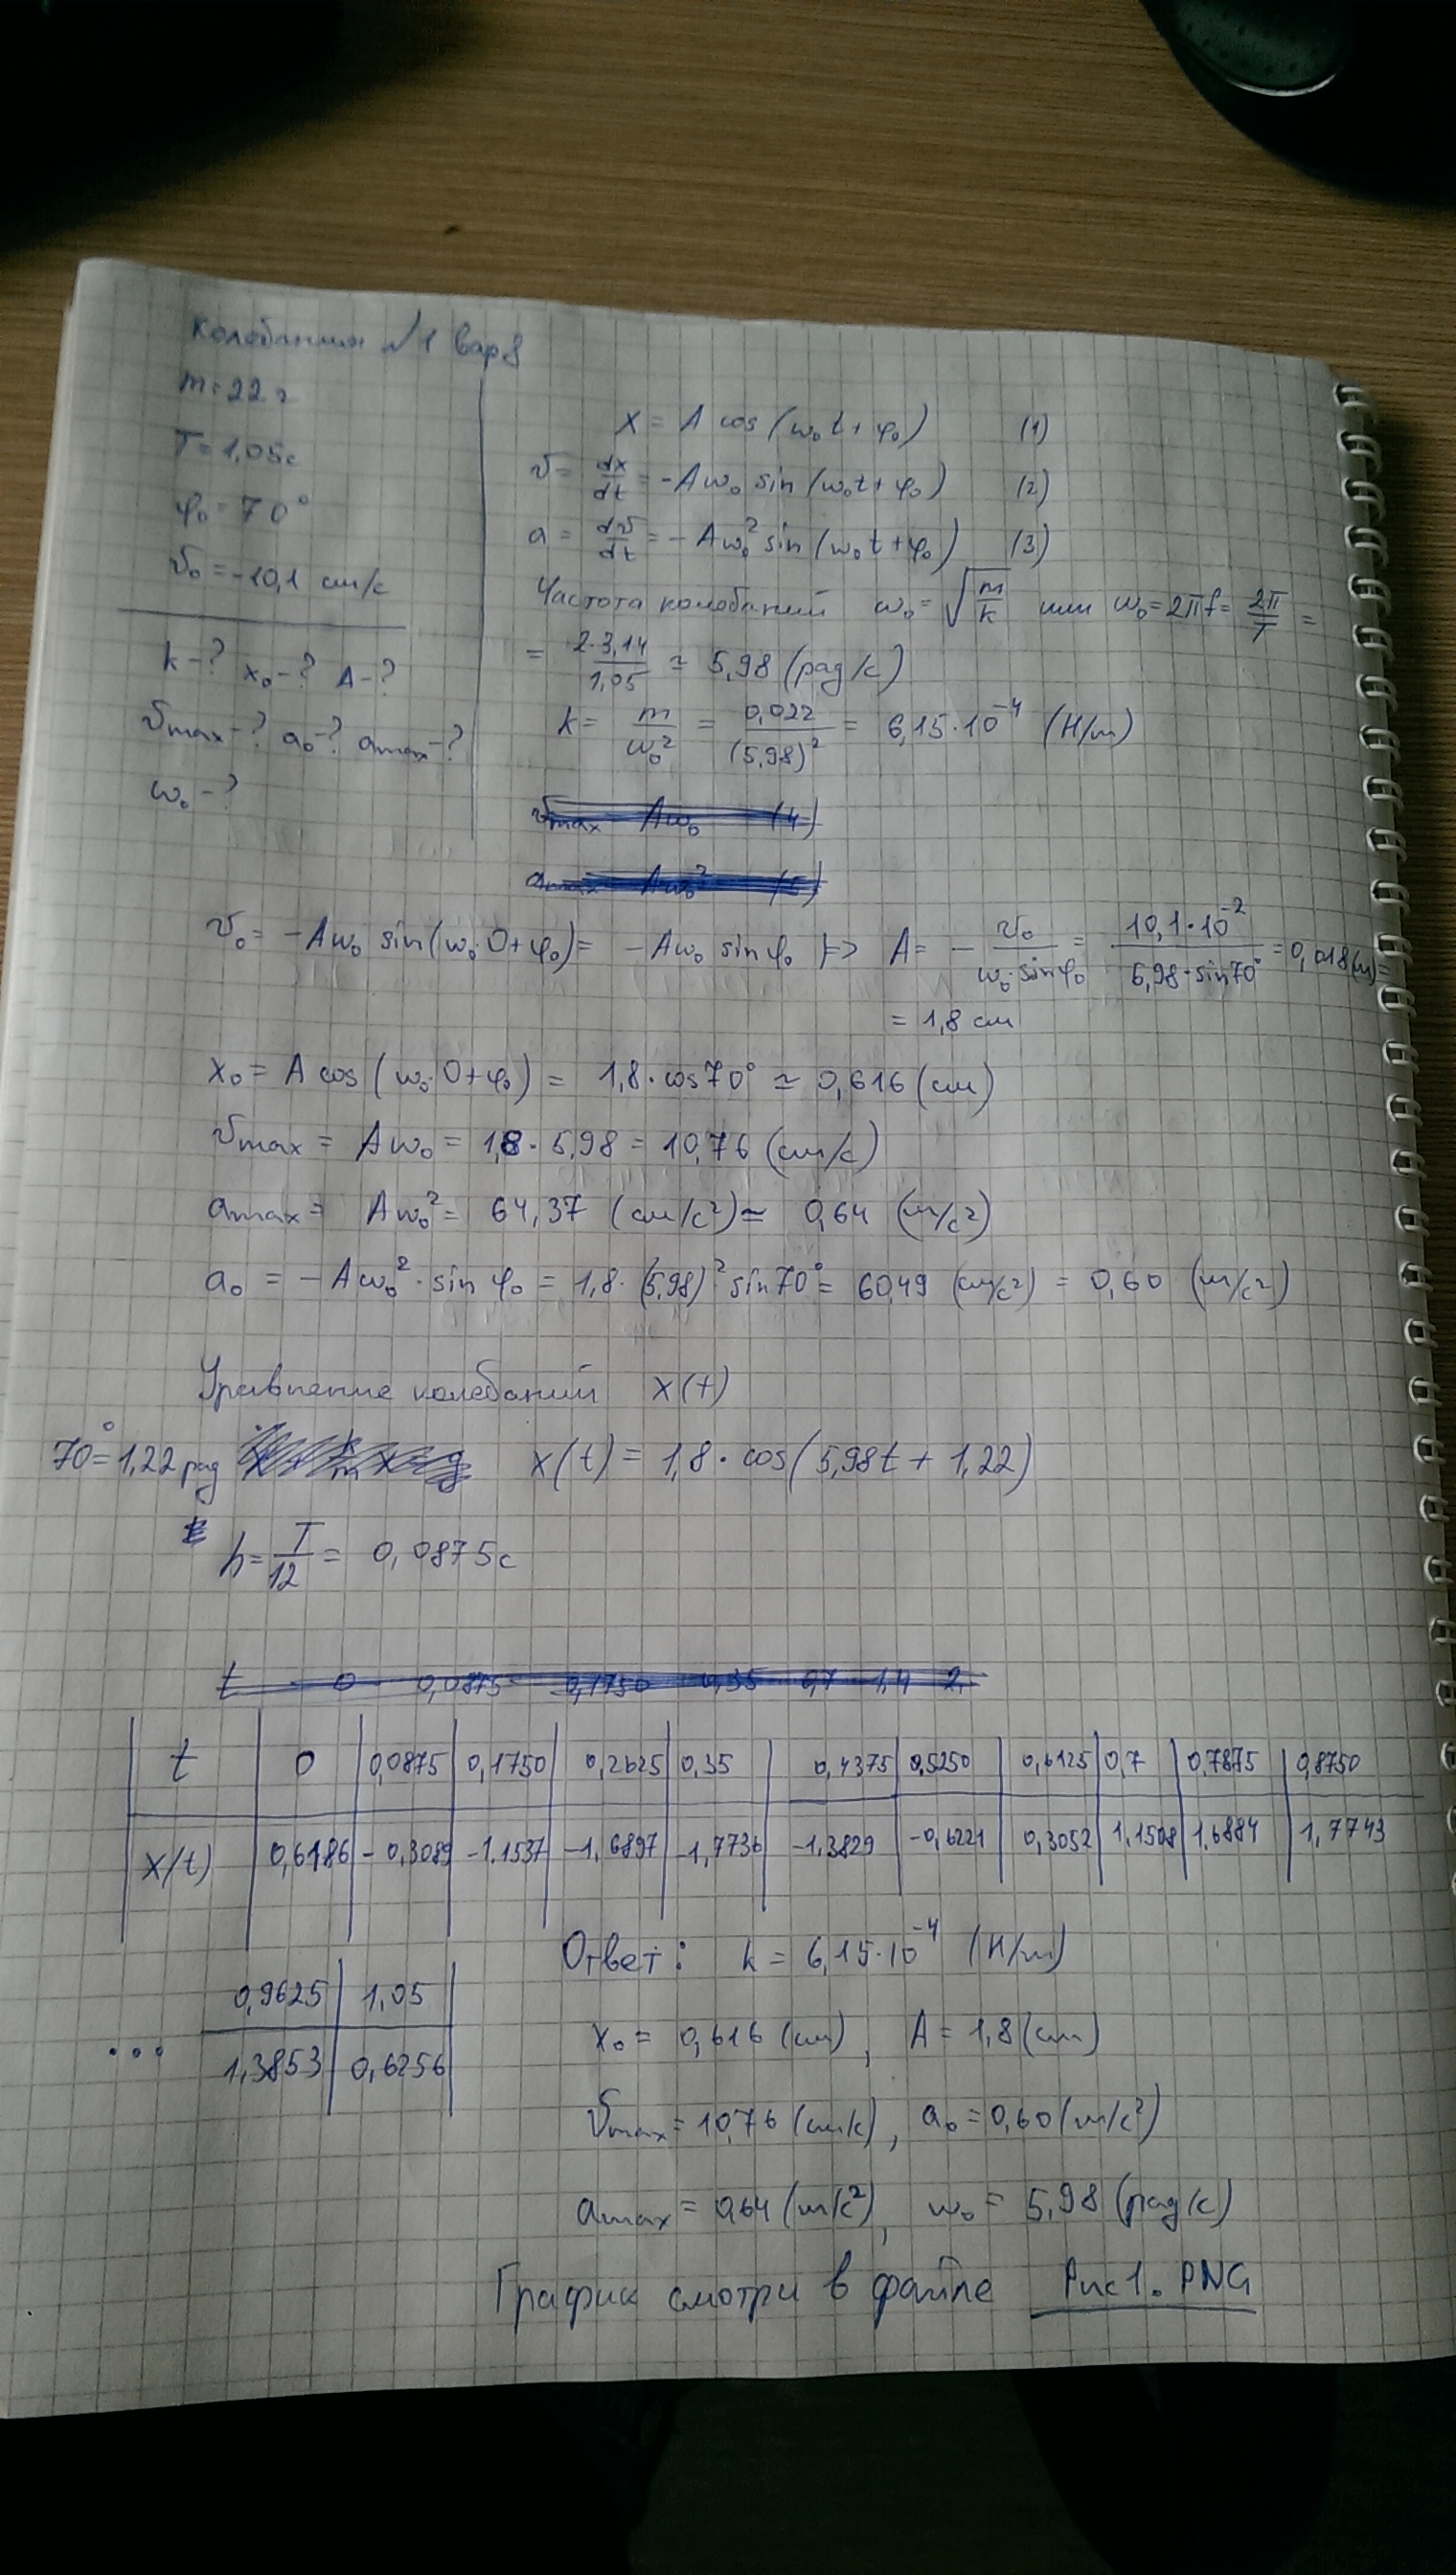 Колебания №1 вар 8
m = 22 г
T = 1,05 с
φ₀ = 70°
v₀ = -10,1 см/с
k-? x₀-? A-?
vmax-? a₀-? amax-?
ω₀-?
x = A cos(ω₀t + φ₀) (1)
v = dx/dt = -Aω₀ sin(ω₀t + φ₀) (2)
a = dv/dt = -Aω₀² sin(ω₀t + φ₀) (3)
Частота колебаний ω₀ = √(m/k) или ω₀ = 2πf = 2π/T =
= 2·3,14/1,05 ≃ 5,98 (рад/с)
k = m/ω₀² = 0,022/(5,98)² = 6,15·10⁻⁴ (Н/м)
vmax Aω₀ (4)
amax Aω₀² (5)
v₀ = -Aω₀ sin(ω₀·0+φ₀) = -Aω₀ sinφ₀ ⇒ A = - v₀/(ω₀·sinφ₀) = 10,1·10⁻²/(5,98·sin70°) = 0,018(м) =
= 1,8 см
x₀ = A cos(ω₀·0+φ₀) = 1,8·cos70° ≃ 0,616 (см)
vmax = Aω₀ = 1,8·5,98 = 10,76 (см/с)
amax = Aω₀² = 64,37 (см/с²) ≃ 0,64 (м/с²)
a₀ = -Aω₀²·sin φ₀ = 1,8·(5,98)² sin70° = 60,49 (см/с²) = 0,60 (м/с²)
Уравнение колебаний x(t)
70° = 1,22 рад x(t) = 1,8·cos(5,98t + 1,22)
h = T/12 = 0,0875 с
t 0 0,0875 0,1750 0,35 0,7 1,4 2,
t 0 0,0875 0,1750 0,2625 0,35 0,4375 0,5250 0,6125 0,7 0,7875 0,8750
x(t) 0,6186 -0,3089 -1,1537 -1,6897 -1,7736 -1,3829 -0,6221 0,3052 1,1508 1,6884 1,7743
... 0,9625 1,05
1,3853 0,6256
Ответ: k = 6,15·10⁻⁴ (Н/м)
x₀ = 0,616 (см), A = 1,8 (см)
vmax = 10,76 (см/с), a₀ = 0,60 (м/с²)
amax = 0,64 (м/с²), ω₀ = 5,98 (рад/с)
График смотри в файле Рис1. PNG